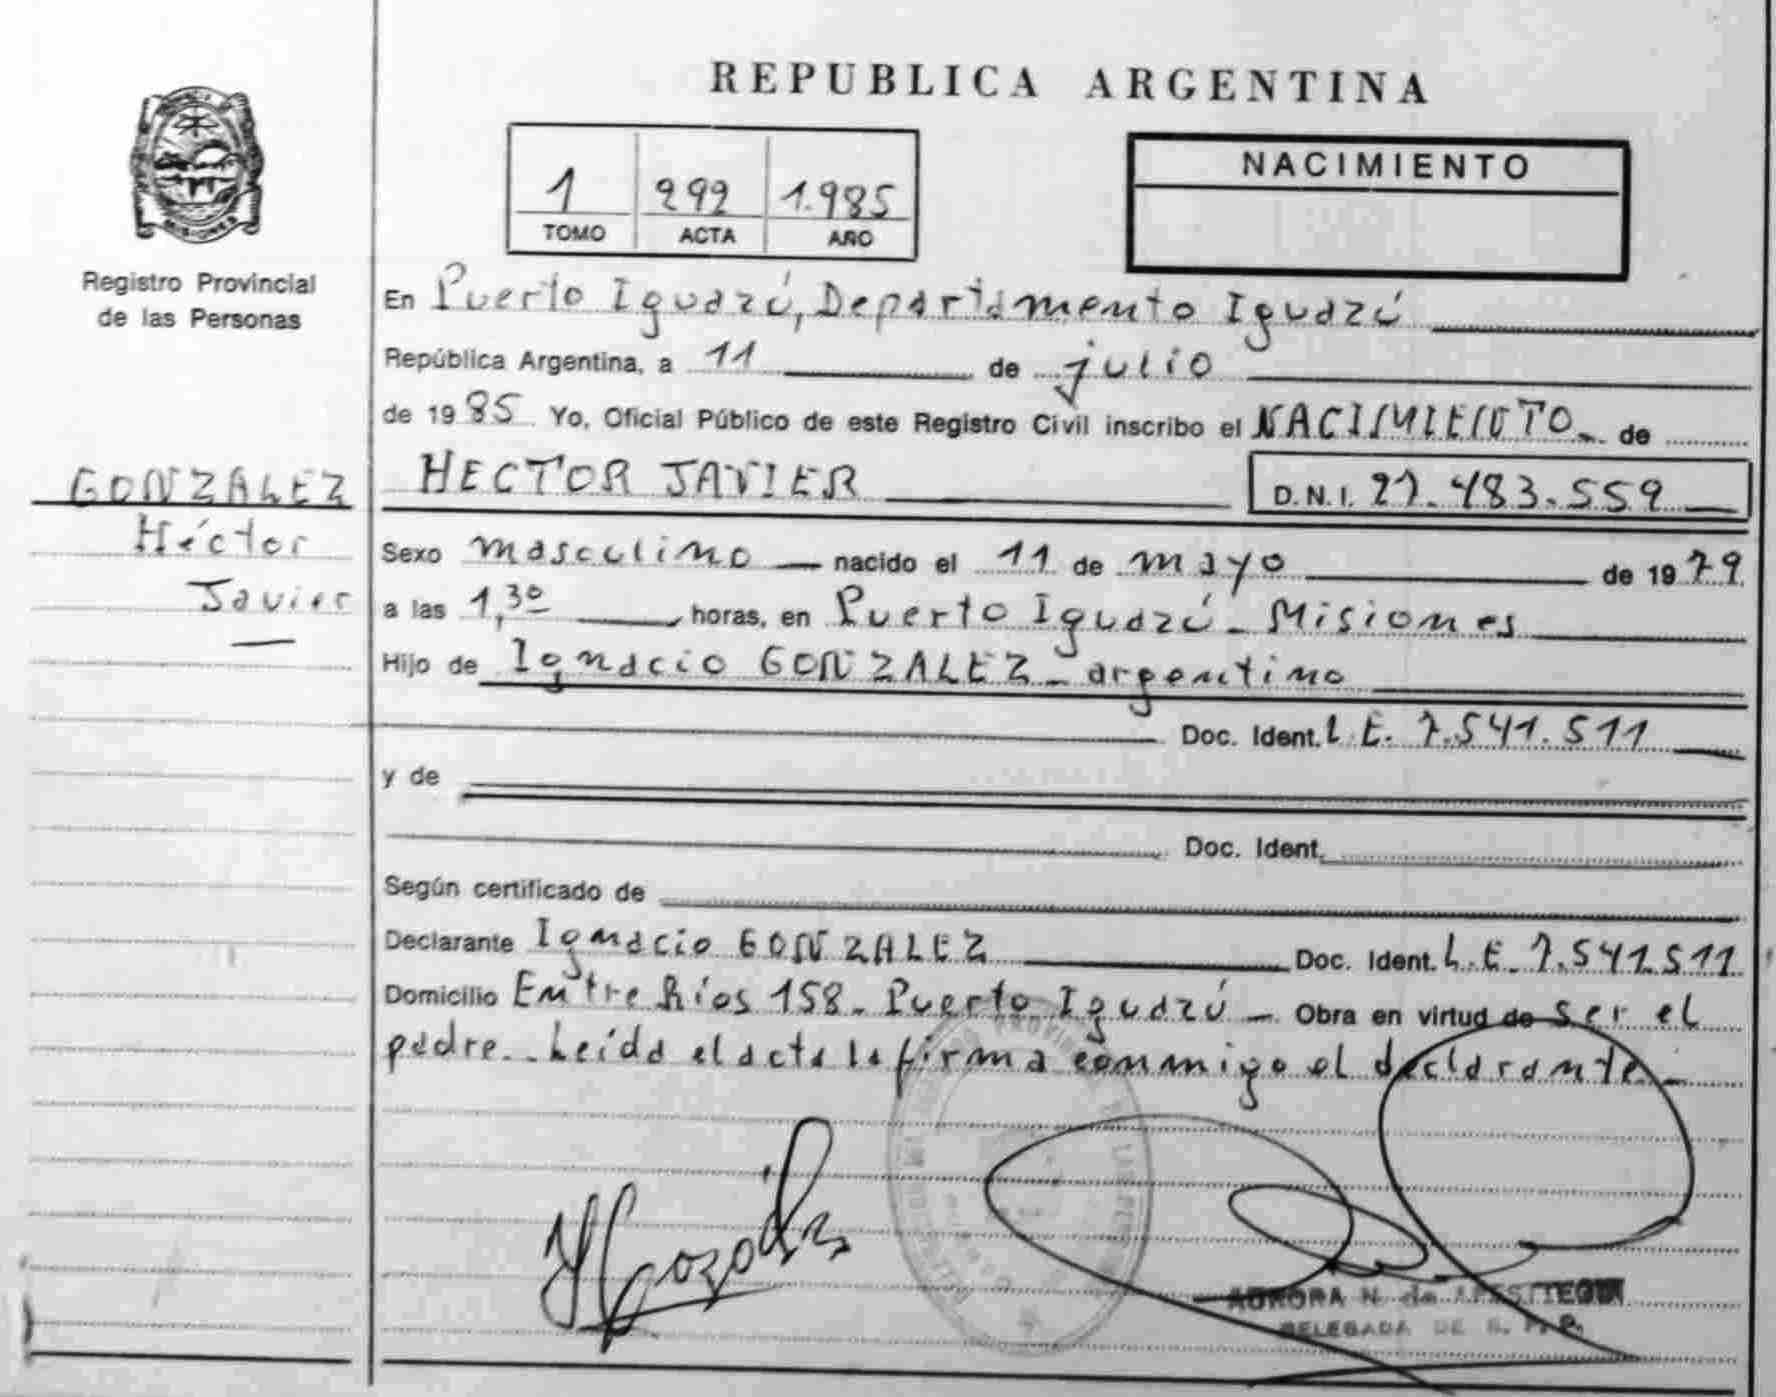 REPUBLICA ARGENTINA
MISIONES
Registro Provincial
de las Personas
1 292 1.985
TOMO ACTA AÑO
NACIMIENTO
En Puerto Iguazú, Departamento Iguazú
República Argentina, a 11 de julio
de 1985 Yo, Oficial Público de este Registro Civil inscribo el NACIMIENTO de
GONZALEZ
Héctor
Javier
HECTOR JAVIER D.N.I. 27.483.559
Sexo masculino nacido el 11 de mayo de 1979
a las 1,30 horas, en Puerto Iguazú - Misiones
Hijo de Ignacio GONZALEZ - argentino
Doc. Ident. L.E. 7.541.511
y de
Doc. Ident.
Según certificado de
Declarante Ignacio GONZALEZ Doc. Ident. L.E. 7.541.511
Domicilio Entre Ríos 158 - Puerto Iguazú - Obra en virtud de ser el
padre. Leída el acta la firma conmigo el declarante.
AURORA N. de
DELEGADA DE